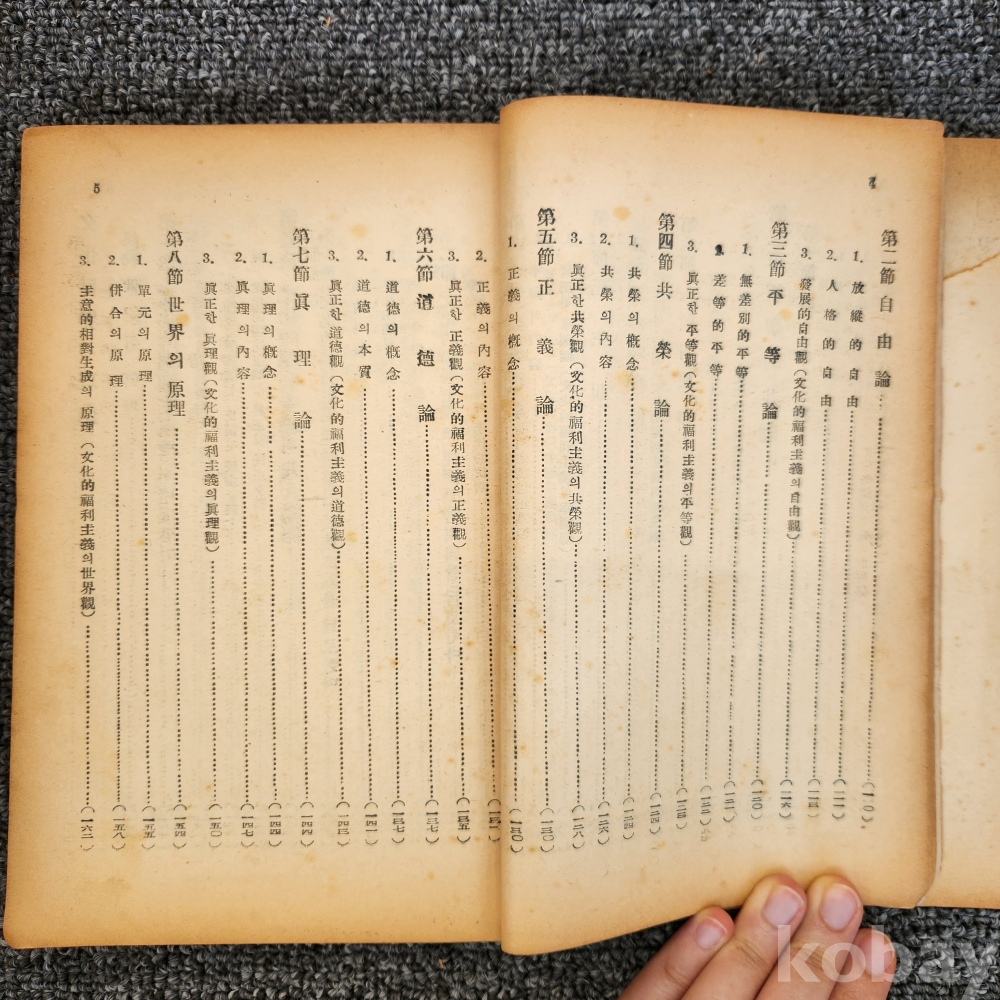 4
第二節 自由論 (一一〇)
1. 放縱的自由 (一一〇)
2. 人格的自由 (一一一)
3. 發展的自由觀(文化的福利主義의自由觀)
第三節 平等論
1. 無差別的平等 (一二〇)
2. 差等的平等 (一二一)
3. 眞正한 平等觀(文化的福利主義의平等觀)
第四節 共榮論 (一二四)
1. 共榮의槪念 (一二四)
2. 共榮의內容 (一二六)
3. 眞正한共榮觀(文化的福利主義의共榮觀) (一二八)
第五節 正義論 (一三〇)
1. 正義의槪念 (一三〇)
2. 正義의內容 (一三一)
3. 眞正한 正義觀(文化的福利主義의正義觀) (一三五)
第六節 道德論 (一三七)
1. 道德의槪念 (一三七)
2. 道德의本質 (一四一)
3. 眞正한道德觀(文化的福利主義의道德觀) (一四三)
第七節 眞理論 (一四四)
1. 眞理의槪念 (一四四)
2. 眞理의內容 (一四七)
3. 眞正한 眞理觀(文化的福利主義의眞理觀) (一五〇)
第八節 世界의原理 (一五四)
1. 單元의原理 (一五五)
2. 倂合의原理 (一五八)
3. 主意的相對生成의 原理 (文化的福利主義의世界觀) (一六二)
5
kobay